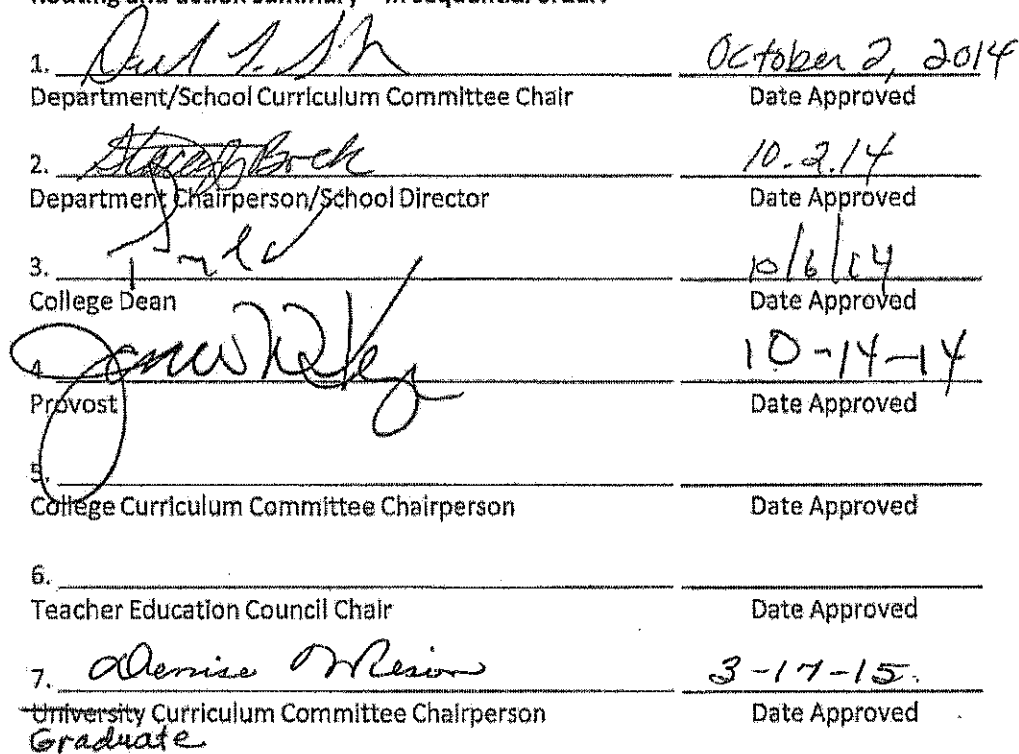 Routing and action summary – in sequential order:
1. October 2, 2014
Department/School Curriculum Committee Chair Date Approved
2. Bock 10.2.14
Department Chairperson/School Director Date Approved
3. 10/6/14
College Dean Date Approved
4. James 10-14-14
Provost Date Approved
5.
College Curriculum Committee Chairperson Date Approved
6.
Teacher Education Council Chair Date Approved
7. Denise 3-17-15.
University Curriculum Committee Chairperson Date Approved
Graduate